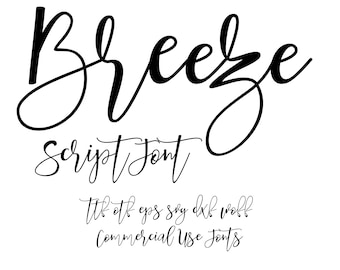 Breeze
Script Font
ttf otf eps svg dxf woff
Commercial Use Fonts